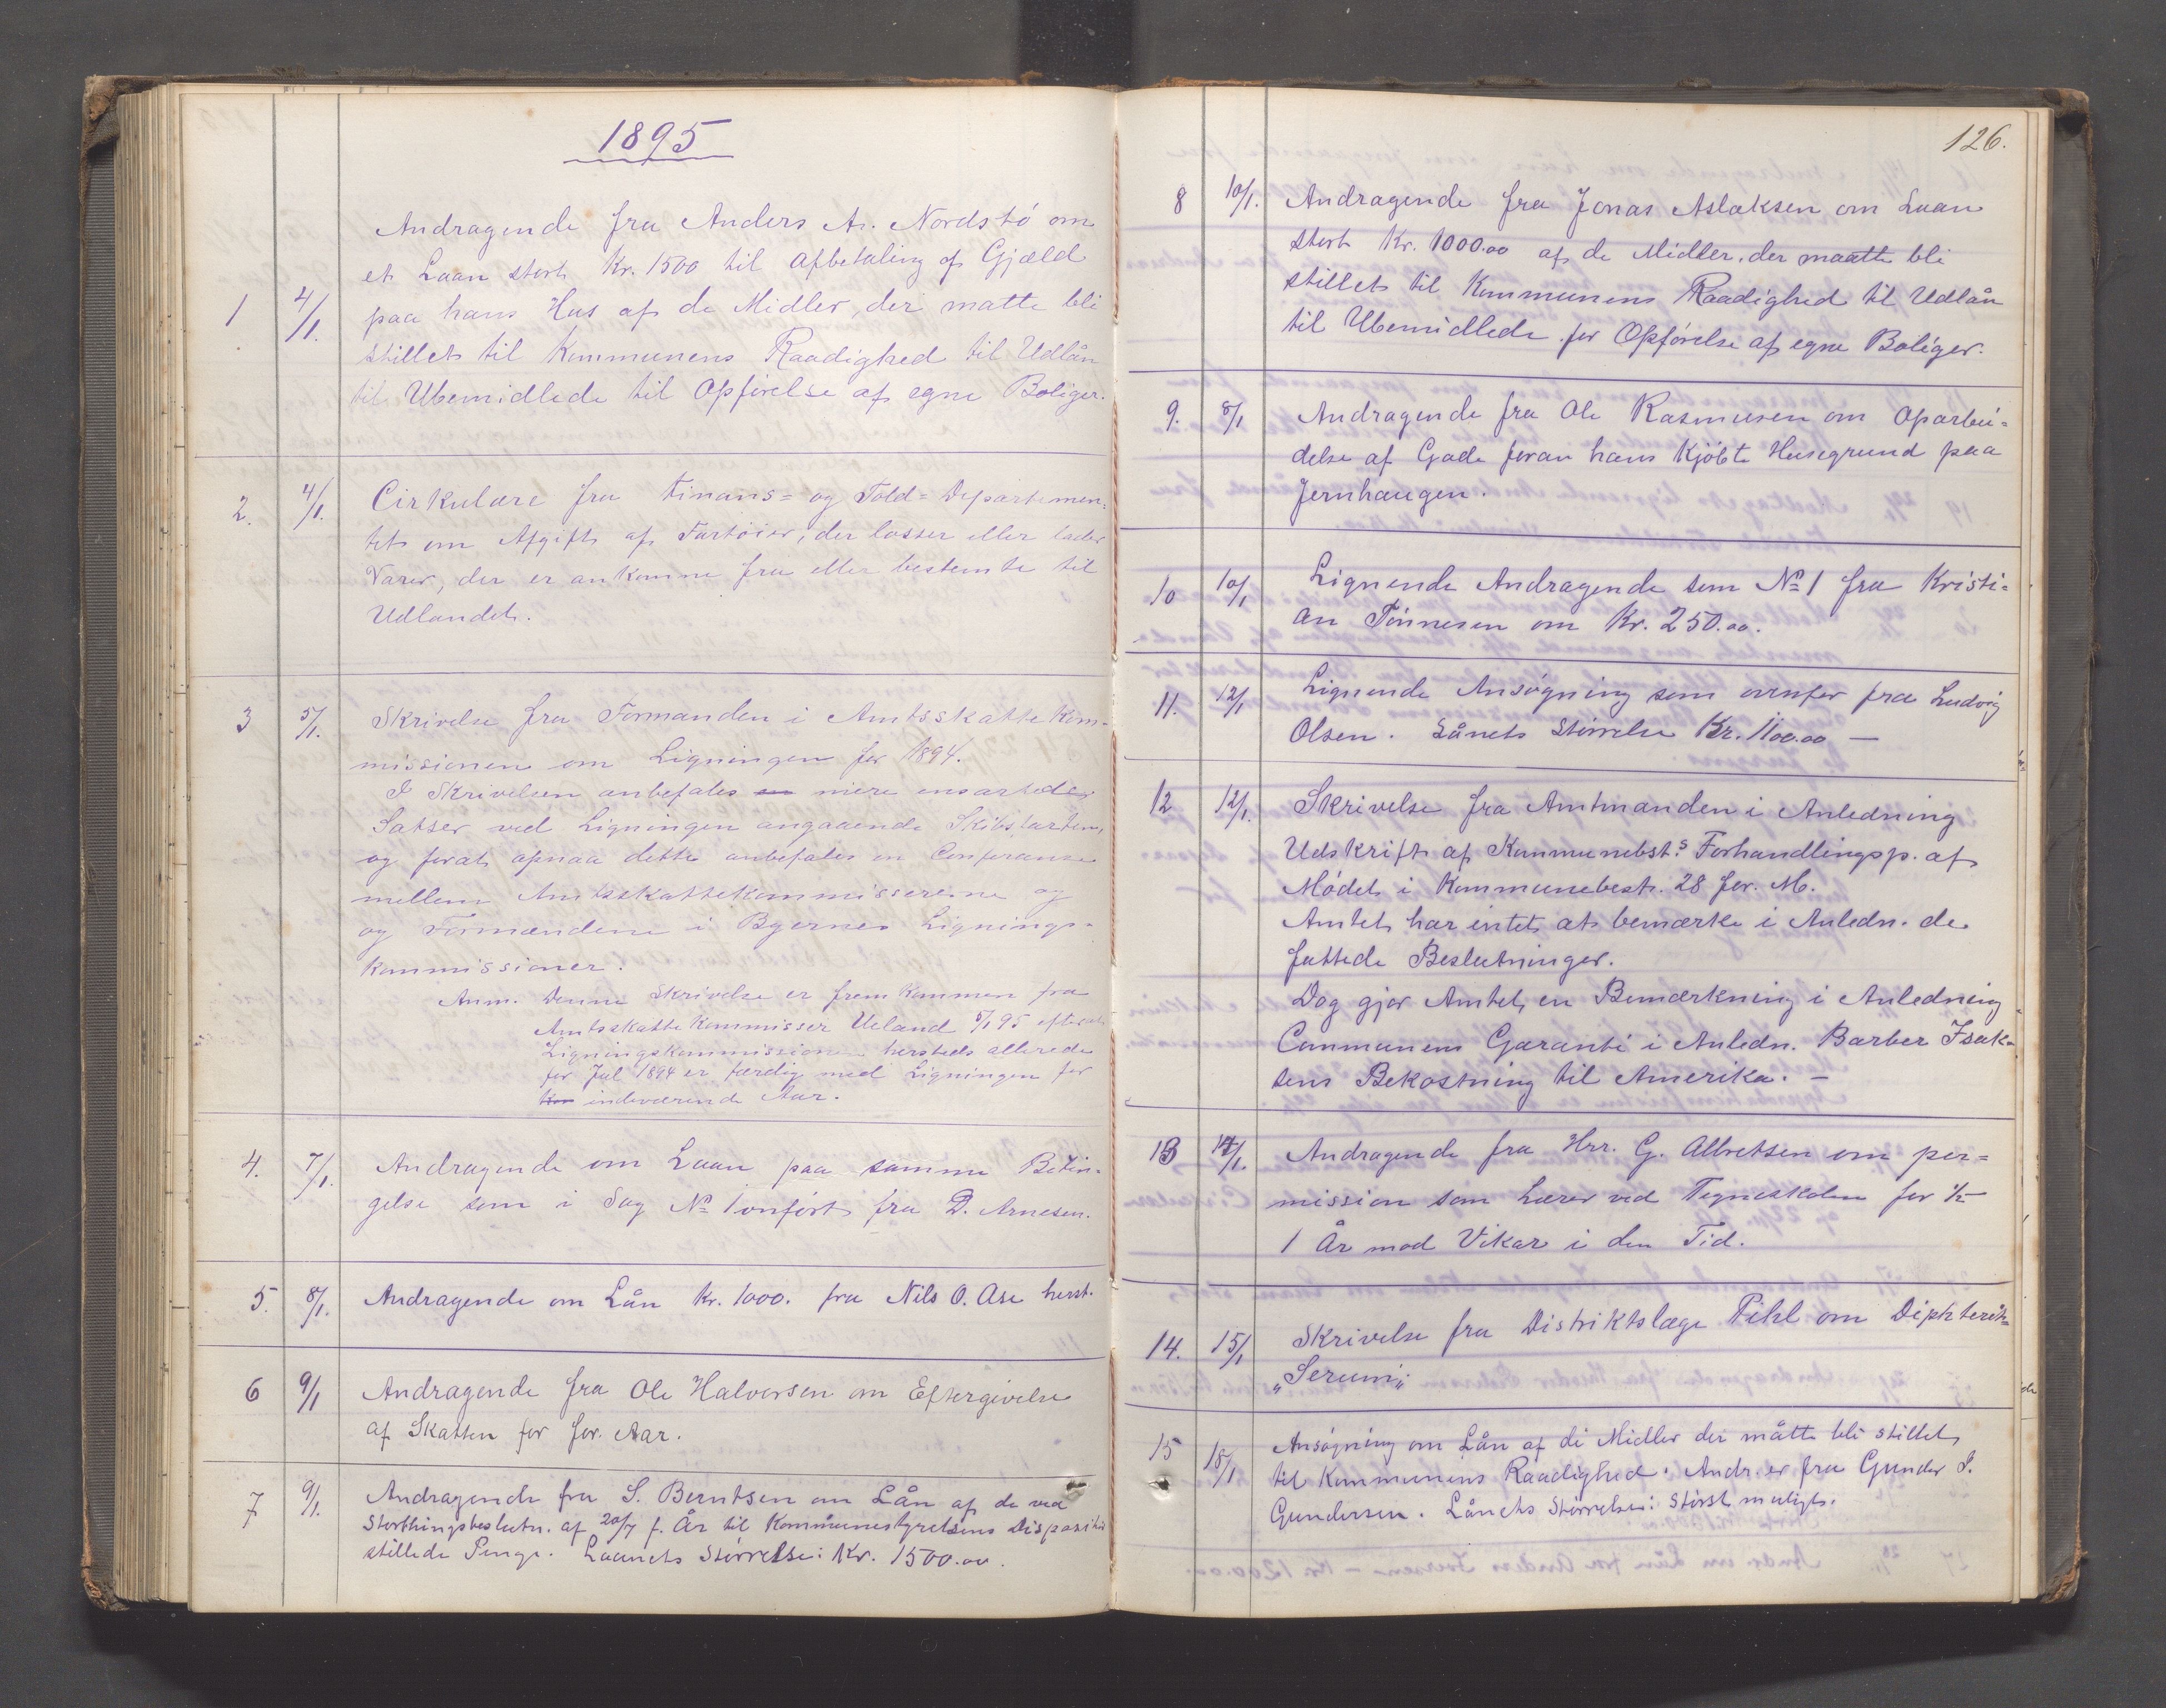 1895
Andragende fra Anders A. Nordstö om
et Laan stort Kr. 1500 til afbetaling af Gjæld
1 4/1. paa hans Hus af de Midler, der matte bli
stillet til Kommunens Raadighed til Udlån
til Ubemidlede til Opförelse af egne Boliger.
2. 4/1. Cirkulære fra Finans= og Told=Departemen=
tet om Afgift af Fartöier, der losser eller lader
Varer, der er ankomne fra eller bestemte til
Udlandet.
3 5/1. Skrivelse fra Formanden i Amtsskattekom-
missionen om Ligningen for 1894.
I Skrivelsen anbefales en mere ensartede
Satser ved Ligningen angaaende Skibsparten,
og forat opnaa dette anbefales en Conferanse
mellem Amtsskattekommisserene og
og Formændene i Byernes Lignings-
kommissioner.
Anm. Denne Skrivelse er fremkommen fra
Amtsskattekommissær Ueland 5/1 95 efterat
Ligningskommissionen hersteds allerede
før Jul 1894 er færdig med Ligningen for
indeværende Aar.
4. 7/1. Andragende om Laan paa samme Betin-
gelse som i Sag No 1 anfört fra D. Arnesen.
5. 8/1. Andragende om Lån Kr. 1000. fra Nils O. Ase herst.
6 9/1 Andragende fra Ole Halvorsen om Eftergivelse
af Skatten for for. Aar.
7 9/1. Andragende fra S. Berntsen om Lån af de ved
Storthingsbeslutn. af 20/7 f. År til Kommunestyrelsens Disposition
stillede Penge. Laanets Störrelse: Kr. 1500.00.
126.
8 10/1. Andragende fra Jonas Aslaksen om Laan
stort Kr. 1000.00 af de Midler, der maatte bli
stillet til Kommunens Raadighed til Udlån
til Ubemidlede for Opförelse af egne Boliger.
9. 8/1 Andragende fra Ole Rasmusen om Oparbei=
delse af Gade foran hans Kjöbte Husegrund paa
Jernhaugen.
10 10/1 Lignende Andragende som No 1 fra Kristi=
an Tönnesen om Kr. 250.00.
11. 12/1 Lignende Ansögning som ovenfor fra Ludvig
Olsen. Lånets Störrelse Kr. 1100.00 —
12 12/1. Skrivelse fra Amtmanden i Anledning
Udskrift af Kommunebst.s Forhandlingsp. af
Mödet i Kommunebest. 28 for. M.
Amtet har intet at bemærke i Anledn. de
fattede Beslutninger.
Dog gjør Amtet en Bemærkning i Anledning
Communens Garanti i Anledn. Barber Isak-
sens Bekostning til Amerika. —
13 14/1. Andragende fra Hrr. G. Albretsen om per=
mission som Lærer ved Tegneskolen for ½
1 År mod Vikar i den Tid.
14. 15/1 Skrivelse fra Distriktslæge Pihl om Diphterit=
„Serum„
15 18/1 Ansögning om Lån af de Midler der måtte bli stillet
til Kommunens Raadighed. Andr. er fra Gunder S.
Gundersen. Lånets Störrelse: Störst muligt.